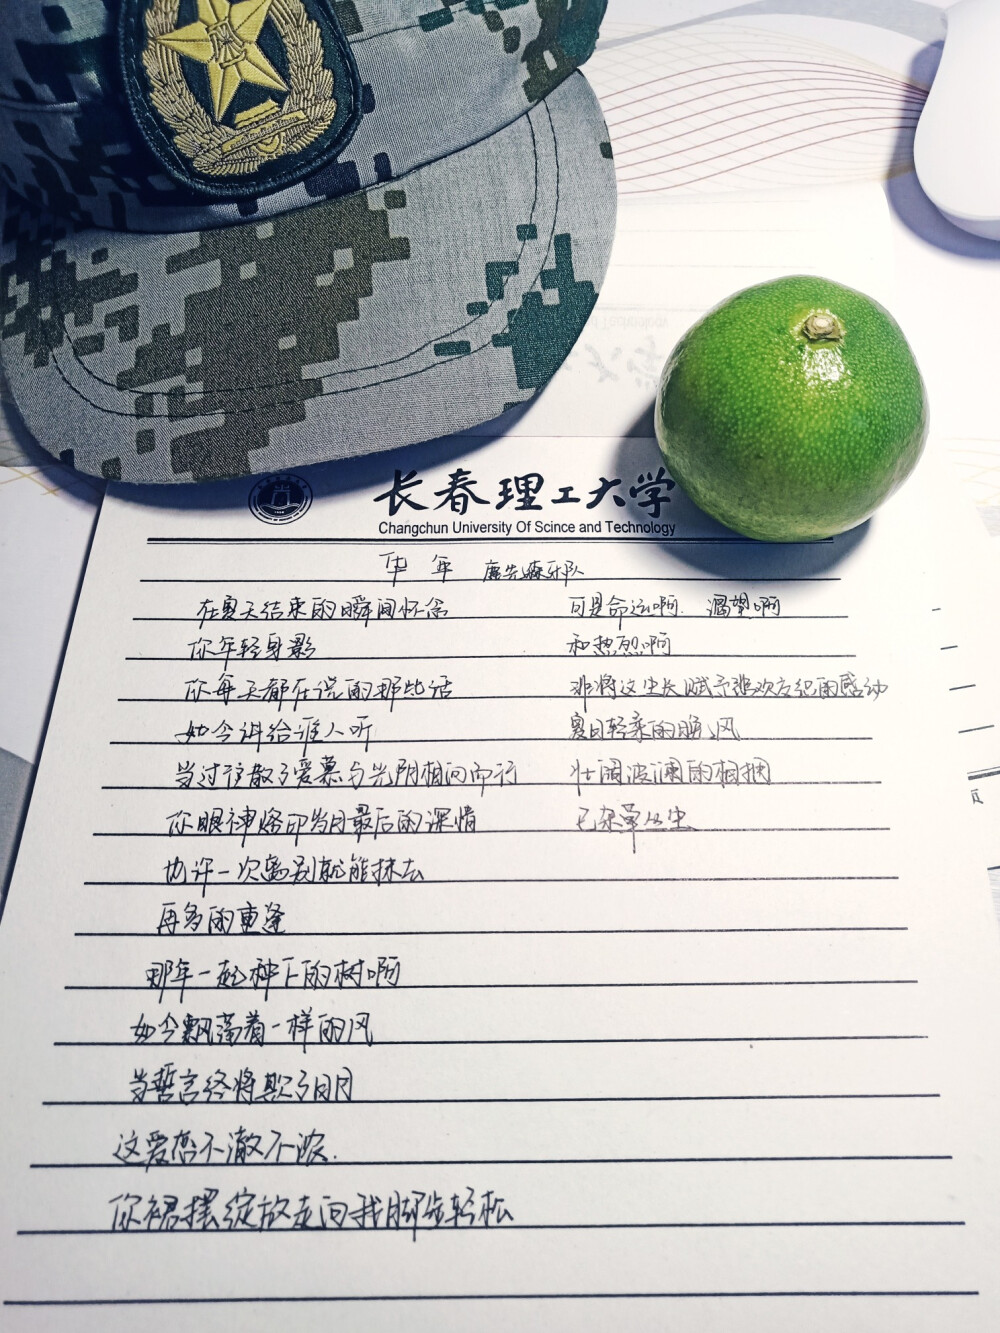 长春理工大学
Changchun University Of Scince and Technology
华年 鹿先森乐队
在夏天结束的瞬间怀念
你年轻身影
你每天都在说的那些话
如今讲给谁人听
当过往散了爱慕与光阴相向而行
你眼神烙印岁月最后的深情
也许一次离别就能抹去
再多的重逢
那年一起种下的树啊
如今飘荡着一样的风
当誓言终将欺了日月
这爱恋不澈不浓.
你裙摆绽放走向我脚步轻松
可是命运啊. 渴望啊
和热烈啊
非将这生长赋予悲欢方纪的感动
夏日轻柔的晚风
壮阔波澜的相拥
已杂草丛生
页